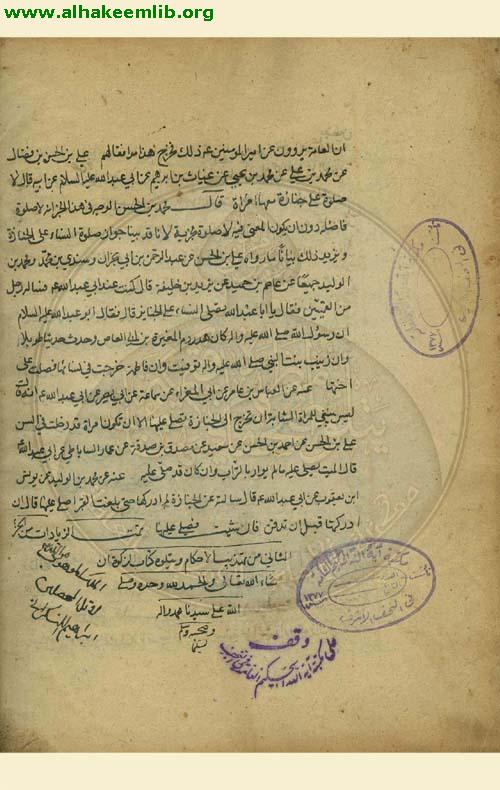 www.alhakeemlib.org
ان العامة يروون عن امير المؤمنين عم ذلك فخرج هذا مرافقا لهم علي بن الحسن بن فضال
عن محمد بن علي عن محمد بن يحيى عن غياث بن ابرهيم عن ابي عبد الله عليه السلام عن ابيه قال لا
صلوة على جنازة معها امراة قال محمد بن الحسن الوجه في هذا الخبر انه لا صلوة
فاضلة دون ان يكون المعنى فيه لا صلوة مجزية لانا قد بينا جواز صلوة النساء على الجنازة
ويزيد ذلك بيانا ما رواه علي بن الحسن عن عبد الرحمن بن ابي نجران وسندي بن محمد ومحمد بن
الوليد جميعا عن عاصم بن حميد عن يزيد بن خليفة قال كنت عند ابي عبد الله عم فساله رجل
من القميين فقال يا ابا عبد الله تصلي النساء على الجنايز قال فقال ابو عبد الله عليه السلام
ان رسول الله صلى الله عليه واله كان هدر دم المغيرة بن ابي العاص وحدث حديثا طويلا
وان زينب بنت النبي صلى الله عليه واله توفيت وان فاطمة خرجت في نسائها فصلت على
اختها عنه عن العباس بن عامر عن ابي المغراء عن سماعة عن ابي بصير عن ابي عبد الله عم انه قال
ليس ينبغي للمراة الشابة ان تخرج الى الجنازة تصلي عليها الا ان تكون امراة قد دخلت في السن
علي بن الحسن عن احمد بن الحسن عن سعيد عن مصدق بن صدقة عن عمار الساباطي عن ابي عبد الله
قال الميت يصلى عليه ما لم يوار بالتراب وان كان قد صلي عليه عنه عن محمد بن الوليد عن يونس
ابن يعقوب عن ابي عبد الله عم قال سالته عن الجنازة لم ادركها حتى بلغت القبر اصلي عليها قال ان
ادركتها قبل ان تدفن فان شئت فصل عليها تمت الزيادات من الجزء
الثاني من تهذيب الاحكام ويتلوه كتاب الزكوة ان
شاء الله تعالى والحمد لله وحده وصلى
الله على سيدنا محمد واله
وصحبه وسلم
وقف
على مكتبة اية الله الحكيم العامة في النجف